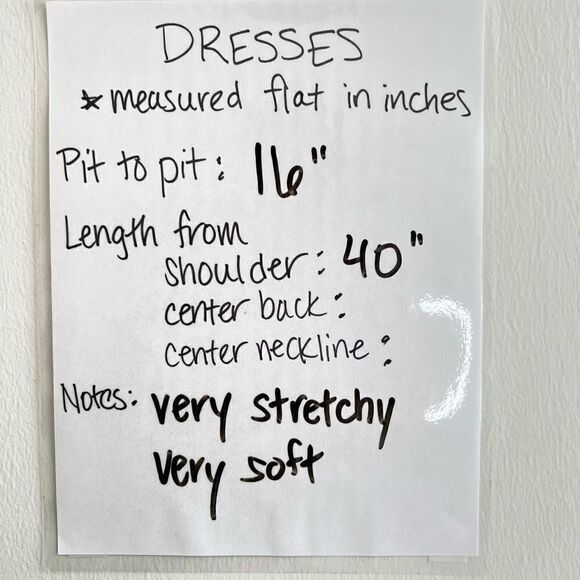 DRESSES
* measured flat in inches
Pit to pit: 16"
Length from
shoulder: 40"
center back:
center neckline:
Notes: very stretchy
very soft